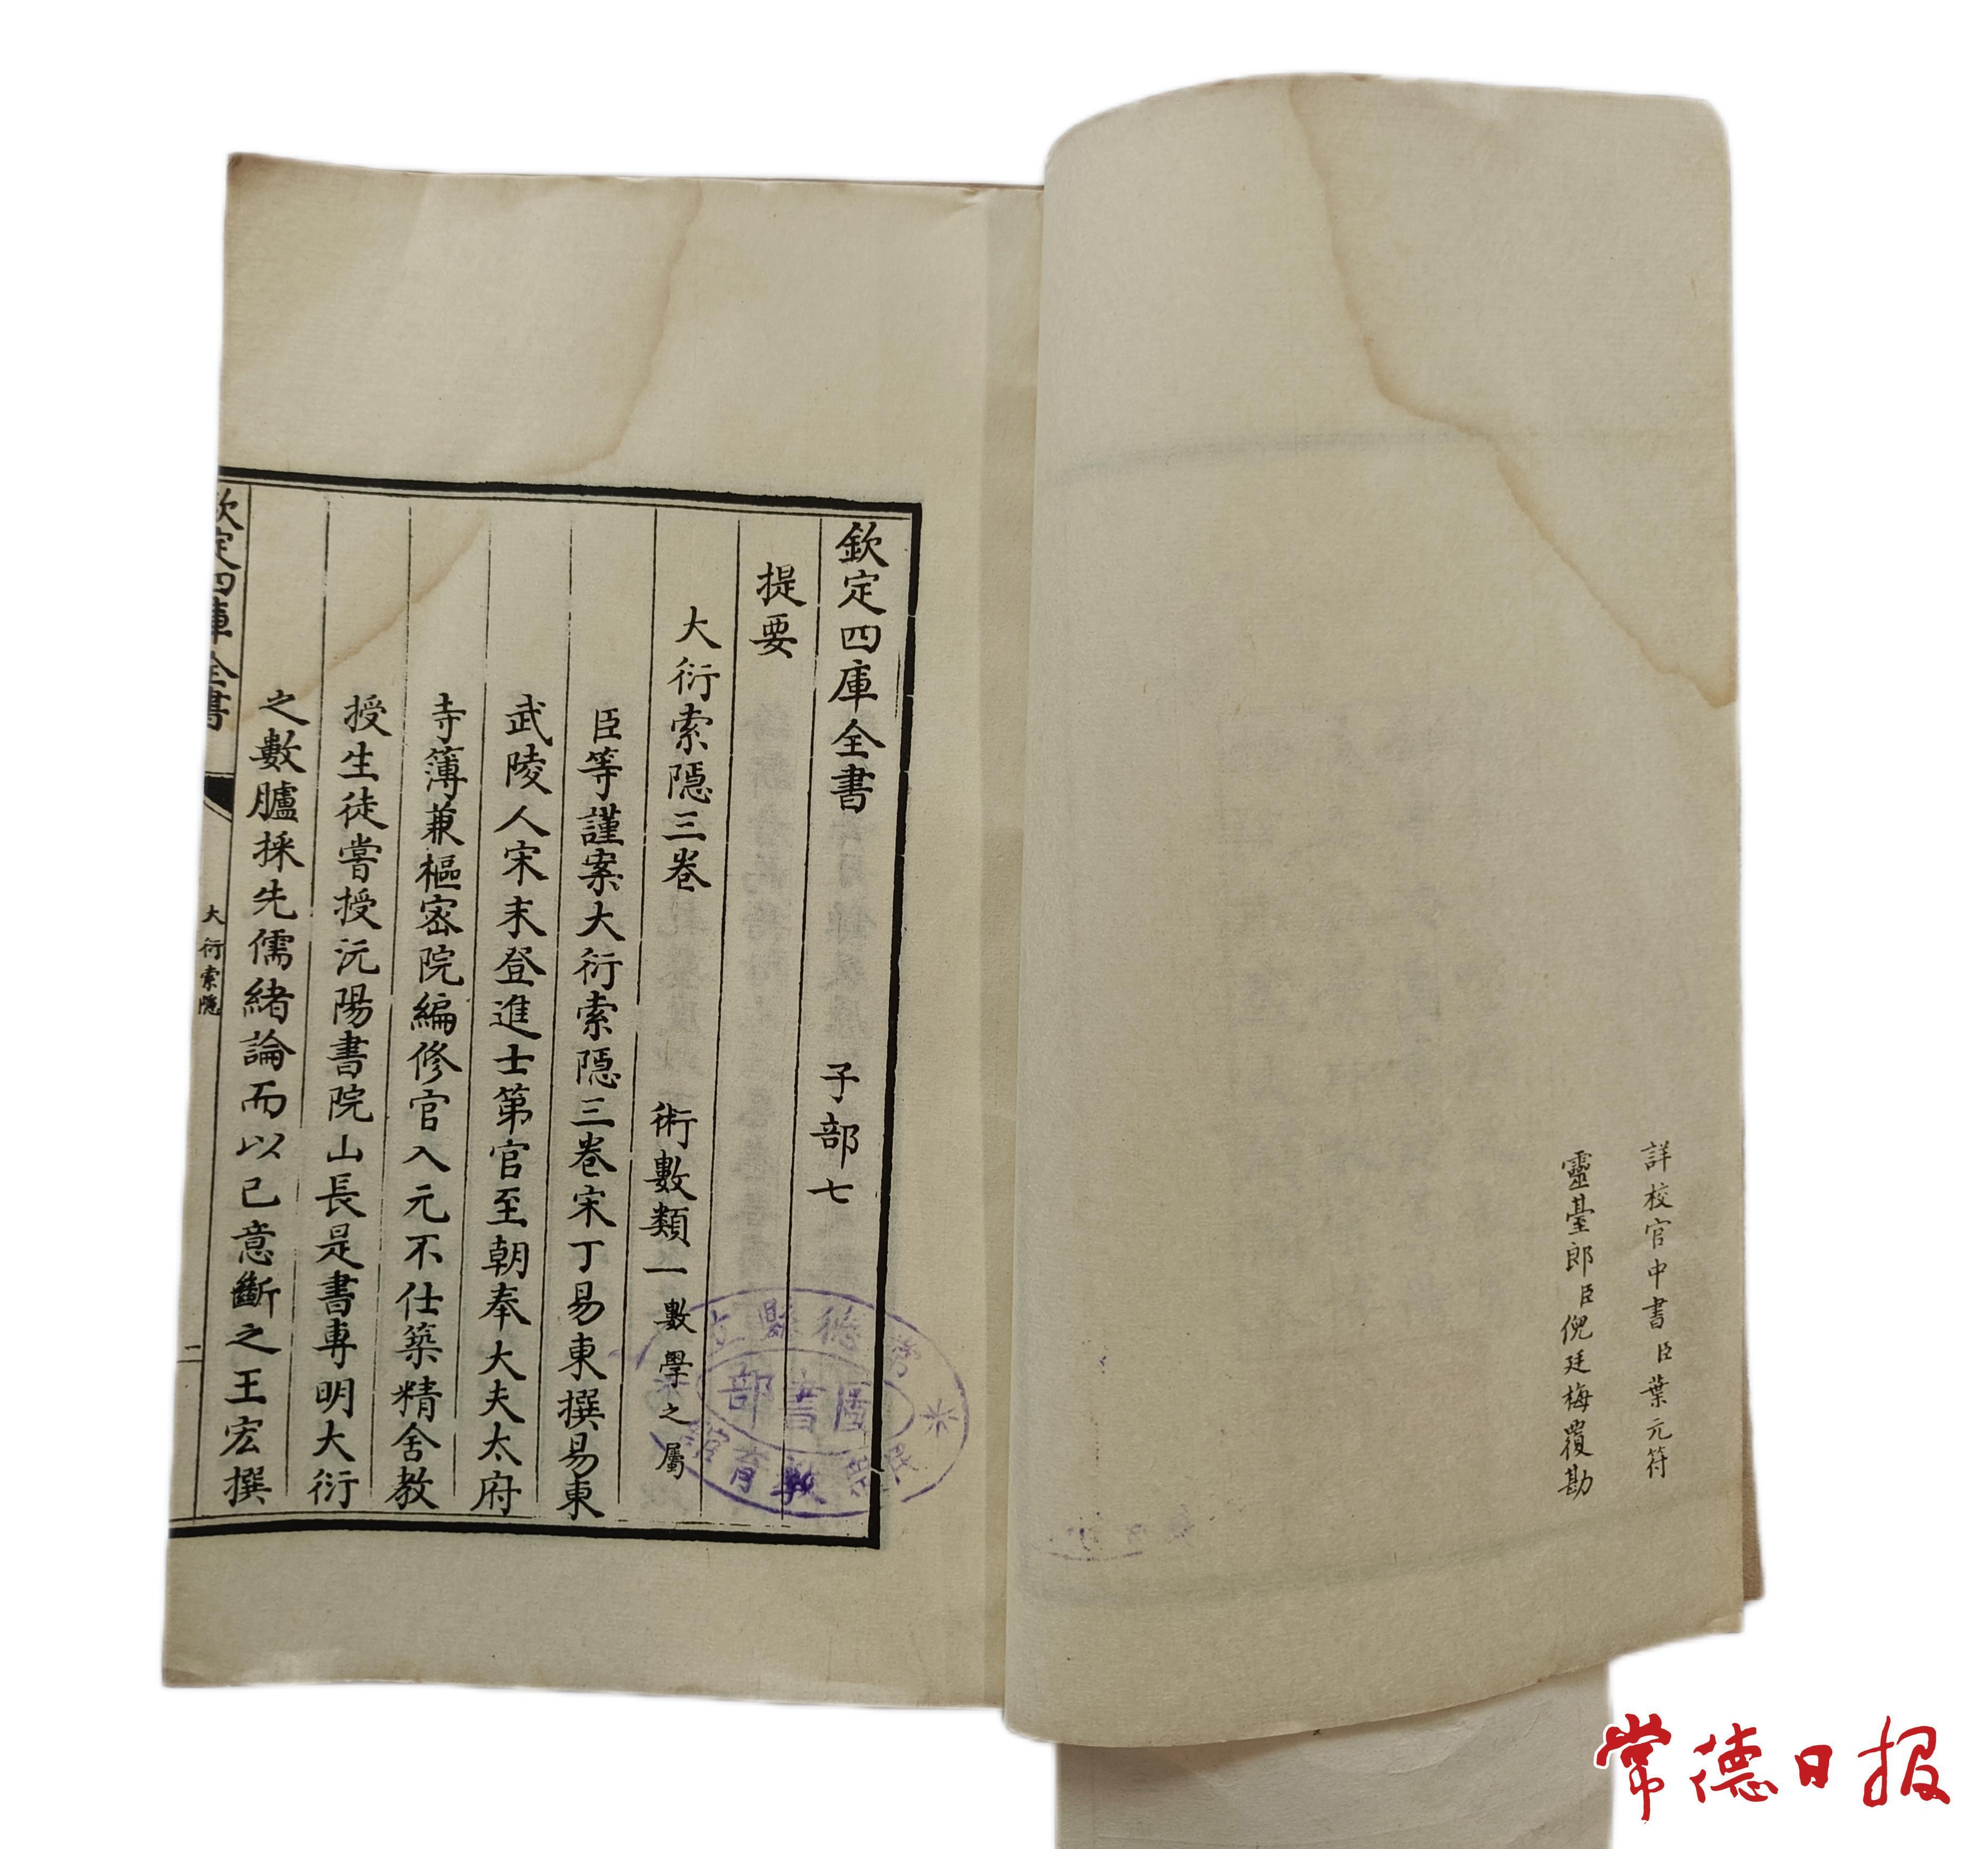 詳校官中書臣葉元符
靈臺郎臣倪廷梅覆勘
欽定四庫全書 子部七
提要
大衍索隱三卷 術數類一數學之屬
臣等謹案大衍索隱三卷宋丁易東撰易東
武陵人宋末登進士第官至朝奉大夫太府
寺簿兼樞密院編修官入元不仕築精舍教
授生徒嘗授沅陽書院山長是書專明大衍
之數臚採先儒緒論而以已意斷之王宏撰
欽定四庫全書
大衍索隱
二
常德縣立
民衆教育館
圖書部
常德日报